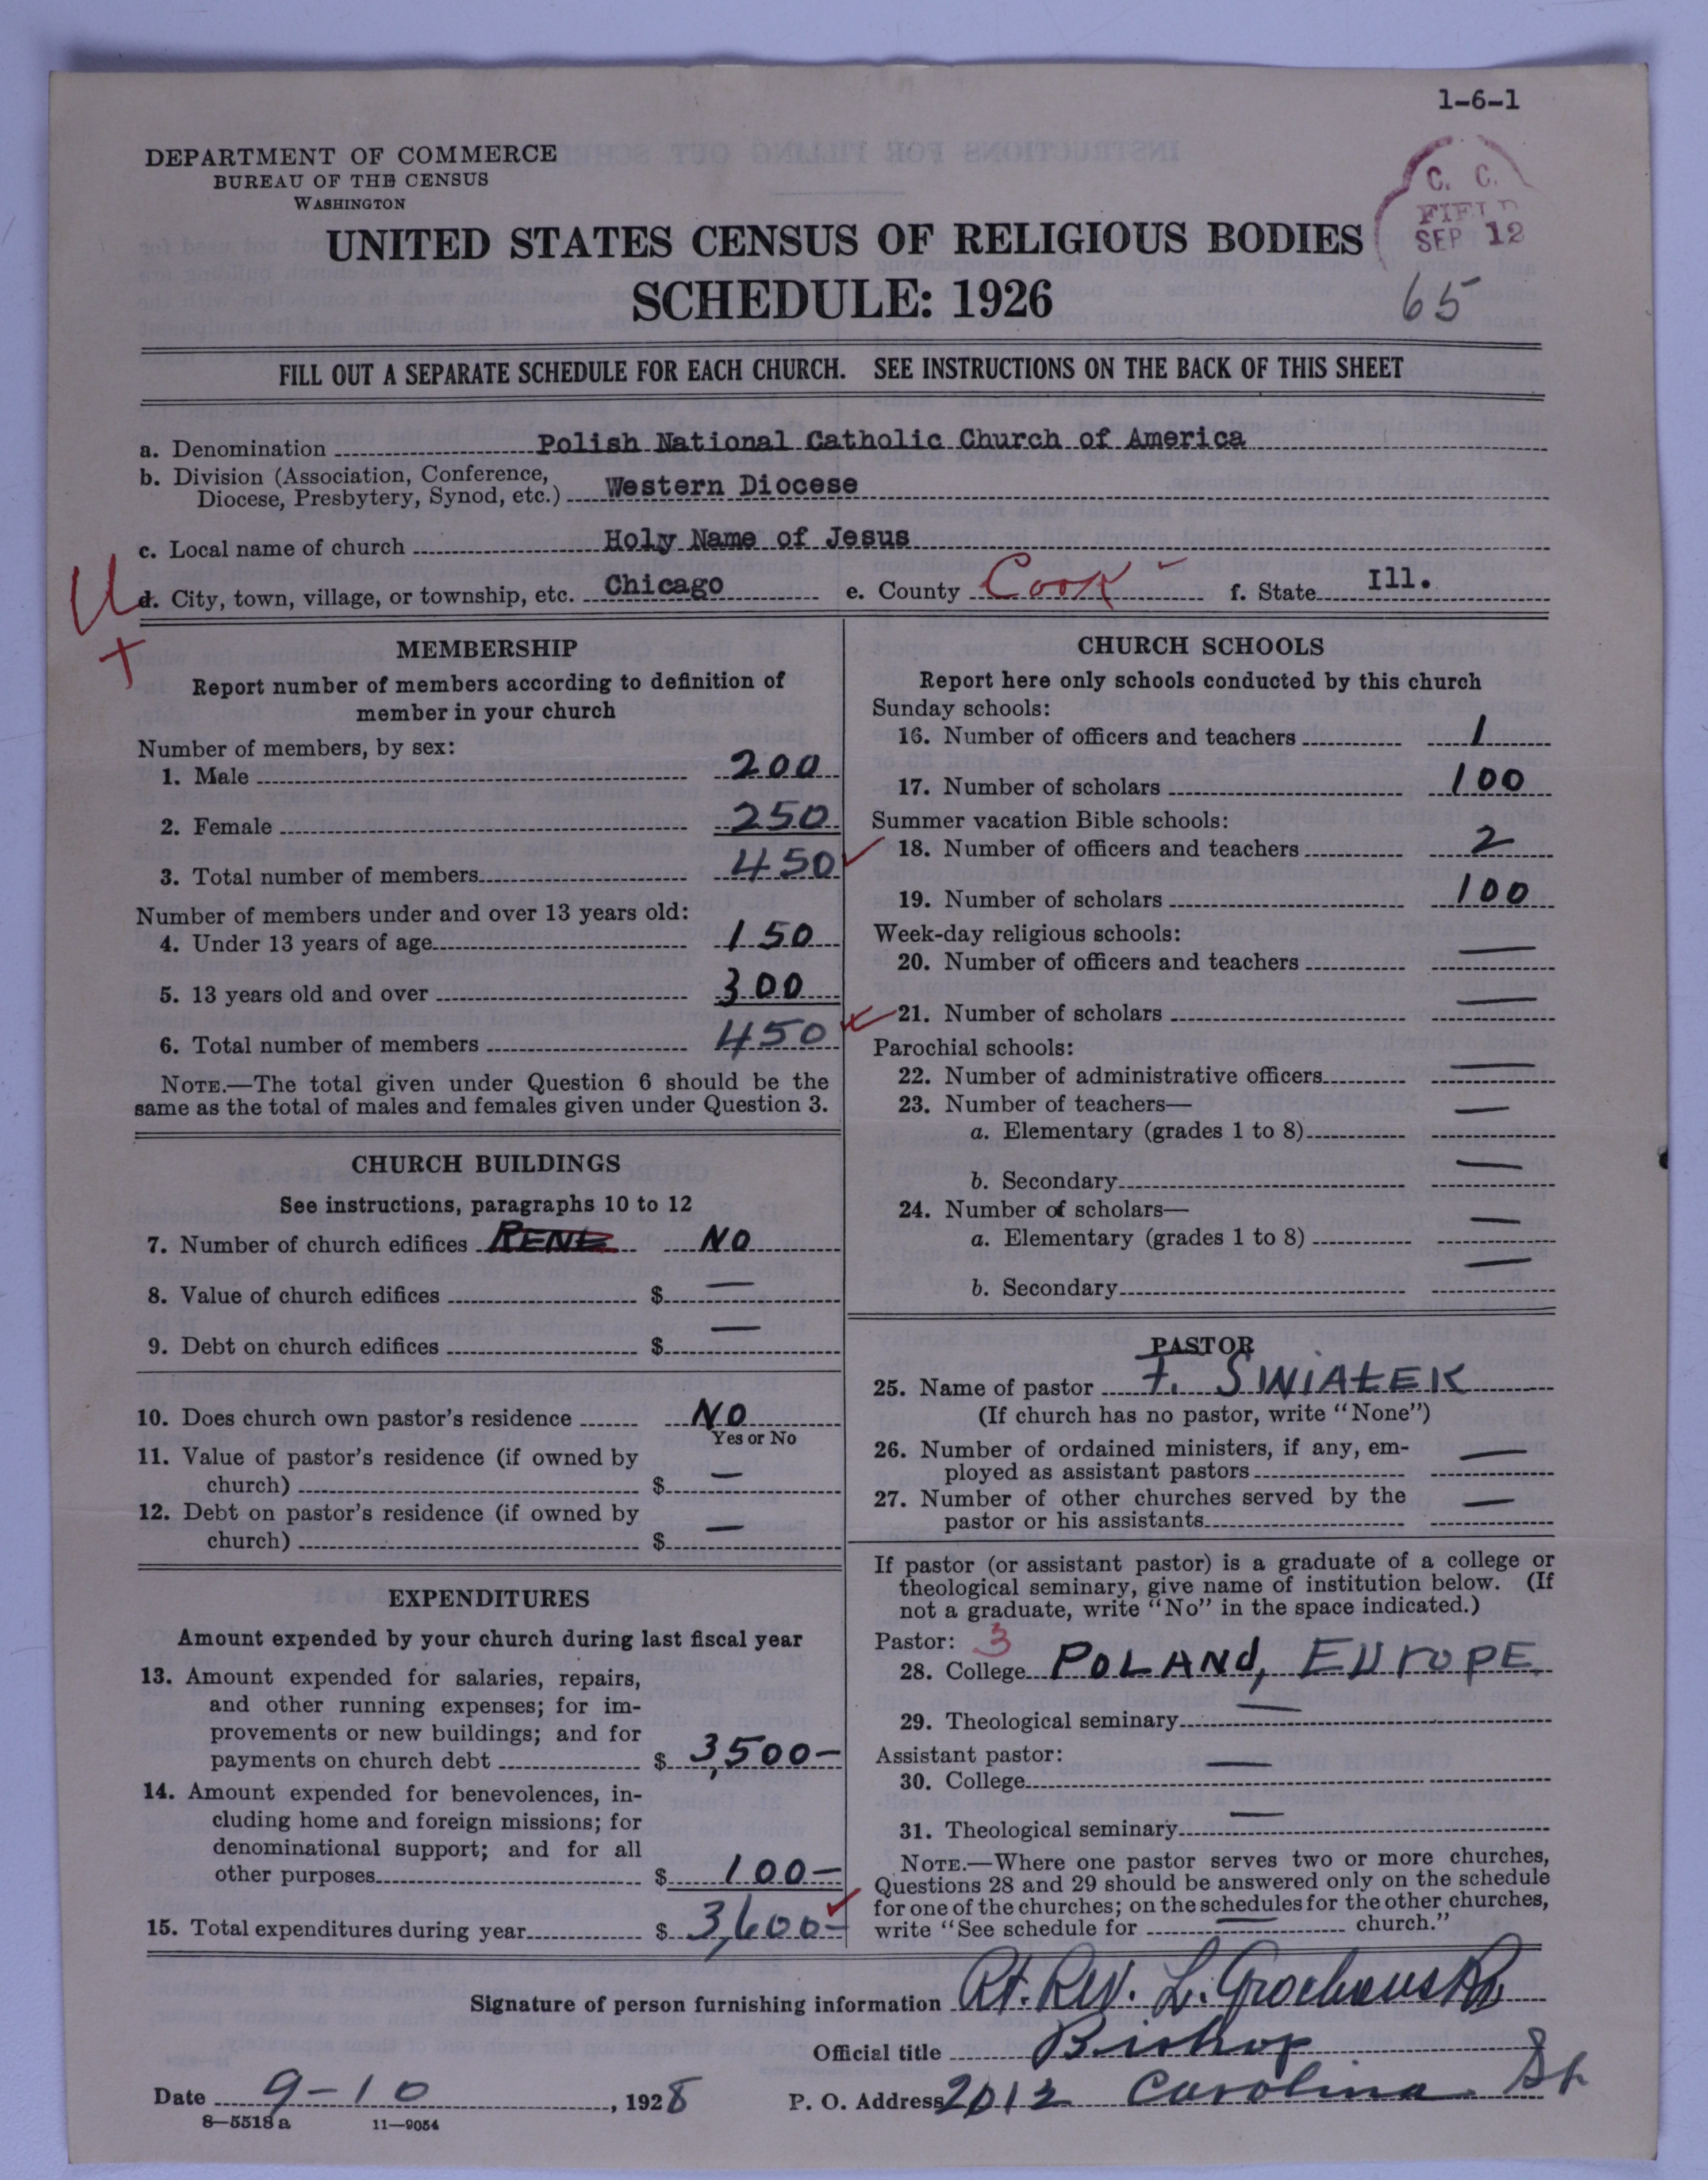 1-6-1
DEPARTMENT OF COMMERCE
BUREAU OF THE CENSUS
WASHINGTON
C. C.
FIELD
SEP 12
UNITED STATES CENSUS OF RELIGIOUS BODIES
SCHEDULE: 1926
65
FILL OUT A SEPARATE SCHEDULE FOR EACH CHURCH. SEE INSTRUCTIONS ON THE BACK OF THIS SHEET
a. Denomination Polish National Catholic Church of America
b. Division (Association, Conference,
Diocese, Presbytery, Synod, etc.) Western Diocese
c. Local name of church Holy Name of Jesus
U d. City, town, village, or township, etc. Chicago e. County Cook f. State Ill.
MEMBERSHIP
Report number of members according to definition of
member in your church
Number of members, by sex:
1. Male 200
2. Female 250
3. Total number of members 450
Number of members under and over 13 years old:
4. Under 13 years of age 150
5. 13 years old and over 300
6. Total number of members 450
NOTE.—The total given under Question 6 should be the
same as the total of males and females given under Question 3.
CHURCH BUILDINGS
See instructions, paragraphs 10 to 12
7. Number of church edifices NO
8. Value of church edifices $ —
9. Debt on church edifices $ —
10. Does church own pastor's residence NO
Yes or No
11. Value of pastor's residence (if owned by
church) $ —
12. Debt on pastor's residence (if owned by
church) $ —
EXPENDITURES
Amount expended by your church during last fiscal year
13. Amount expended for salaries, repairs,
and other running expenses; for im-
provements or new buildings; and for
payments on church debt $ 3,500—
14. Amount expended for benevolences, in-
cluding home and foreign missions; for
denominational support; and for all
other purposes $ 100—
15. Total expenditures during year $ 3,600—
CHURCH SCHOOLS
Report here only schools conducted by this church
Sunday schools:
16. Number of officers and teachers 1
17. Number of scholars 100
Summer vacation Bible schools:
18. Number of officers and teachers 2
19. Number of scholars 100
Week-day religious schools:
20. Number of officers and teachers —
21. Number of scholars —
Parochial schools:
22. Number of administrative officers —
23. Number of teachers—
a. Elementary (grades 1 to 8) —
b. Secondary —
24. Number of scholars—
a. Elementary (grades 1 to 8) —
b. Secondary —
PASTOR
25. Name of pastor F. SWIATEK
(If church has no pastor, write "None")
26. Number of ordained ministers, if any, em-
ployed as assistant pastors —
27. Number of other churches served by the
pastor or his assistants —
If pastor (or assistant pastor) is a graduate of a college or
theological seminary, give name of institution below. (If
not a graduate, write "No" in the space indicated.)
Pastor: 3
28. College POLANd, EUrOPE
29. Theological seminary —
Assistant pastor:
30. College —
31. Theological seminary —
NOTE.—Where one pastor serves two or more churches,
Questions 28 and 29 should be answered only on the schedule
for one of the churches; on the schedules for the other churches,
write "See schedule for — church."
Signature of person furnishing information Rt. Rev. L. Grochowski
Official title Bishop
Date 9-10, 1928 P. O. Address 2012 Carolina St
8—5518 a 11—9054